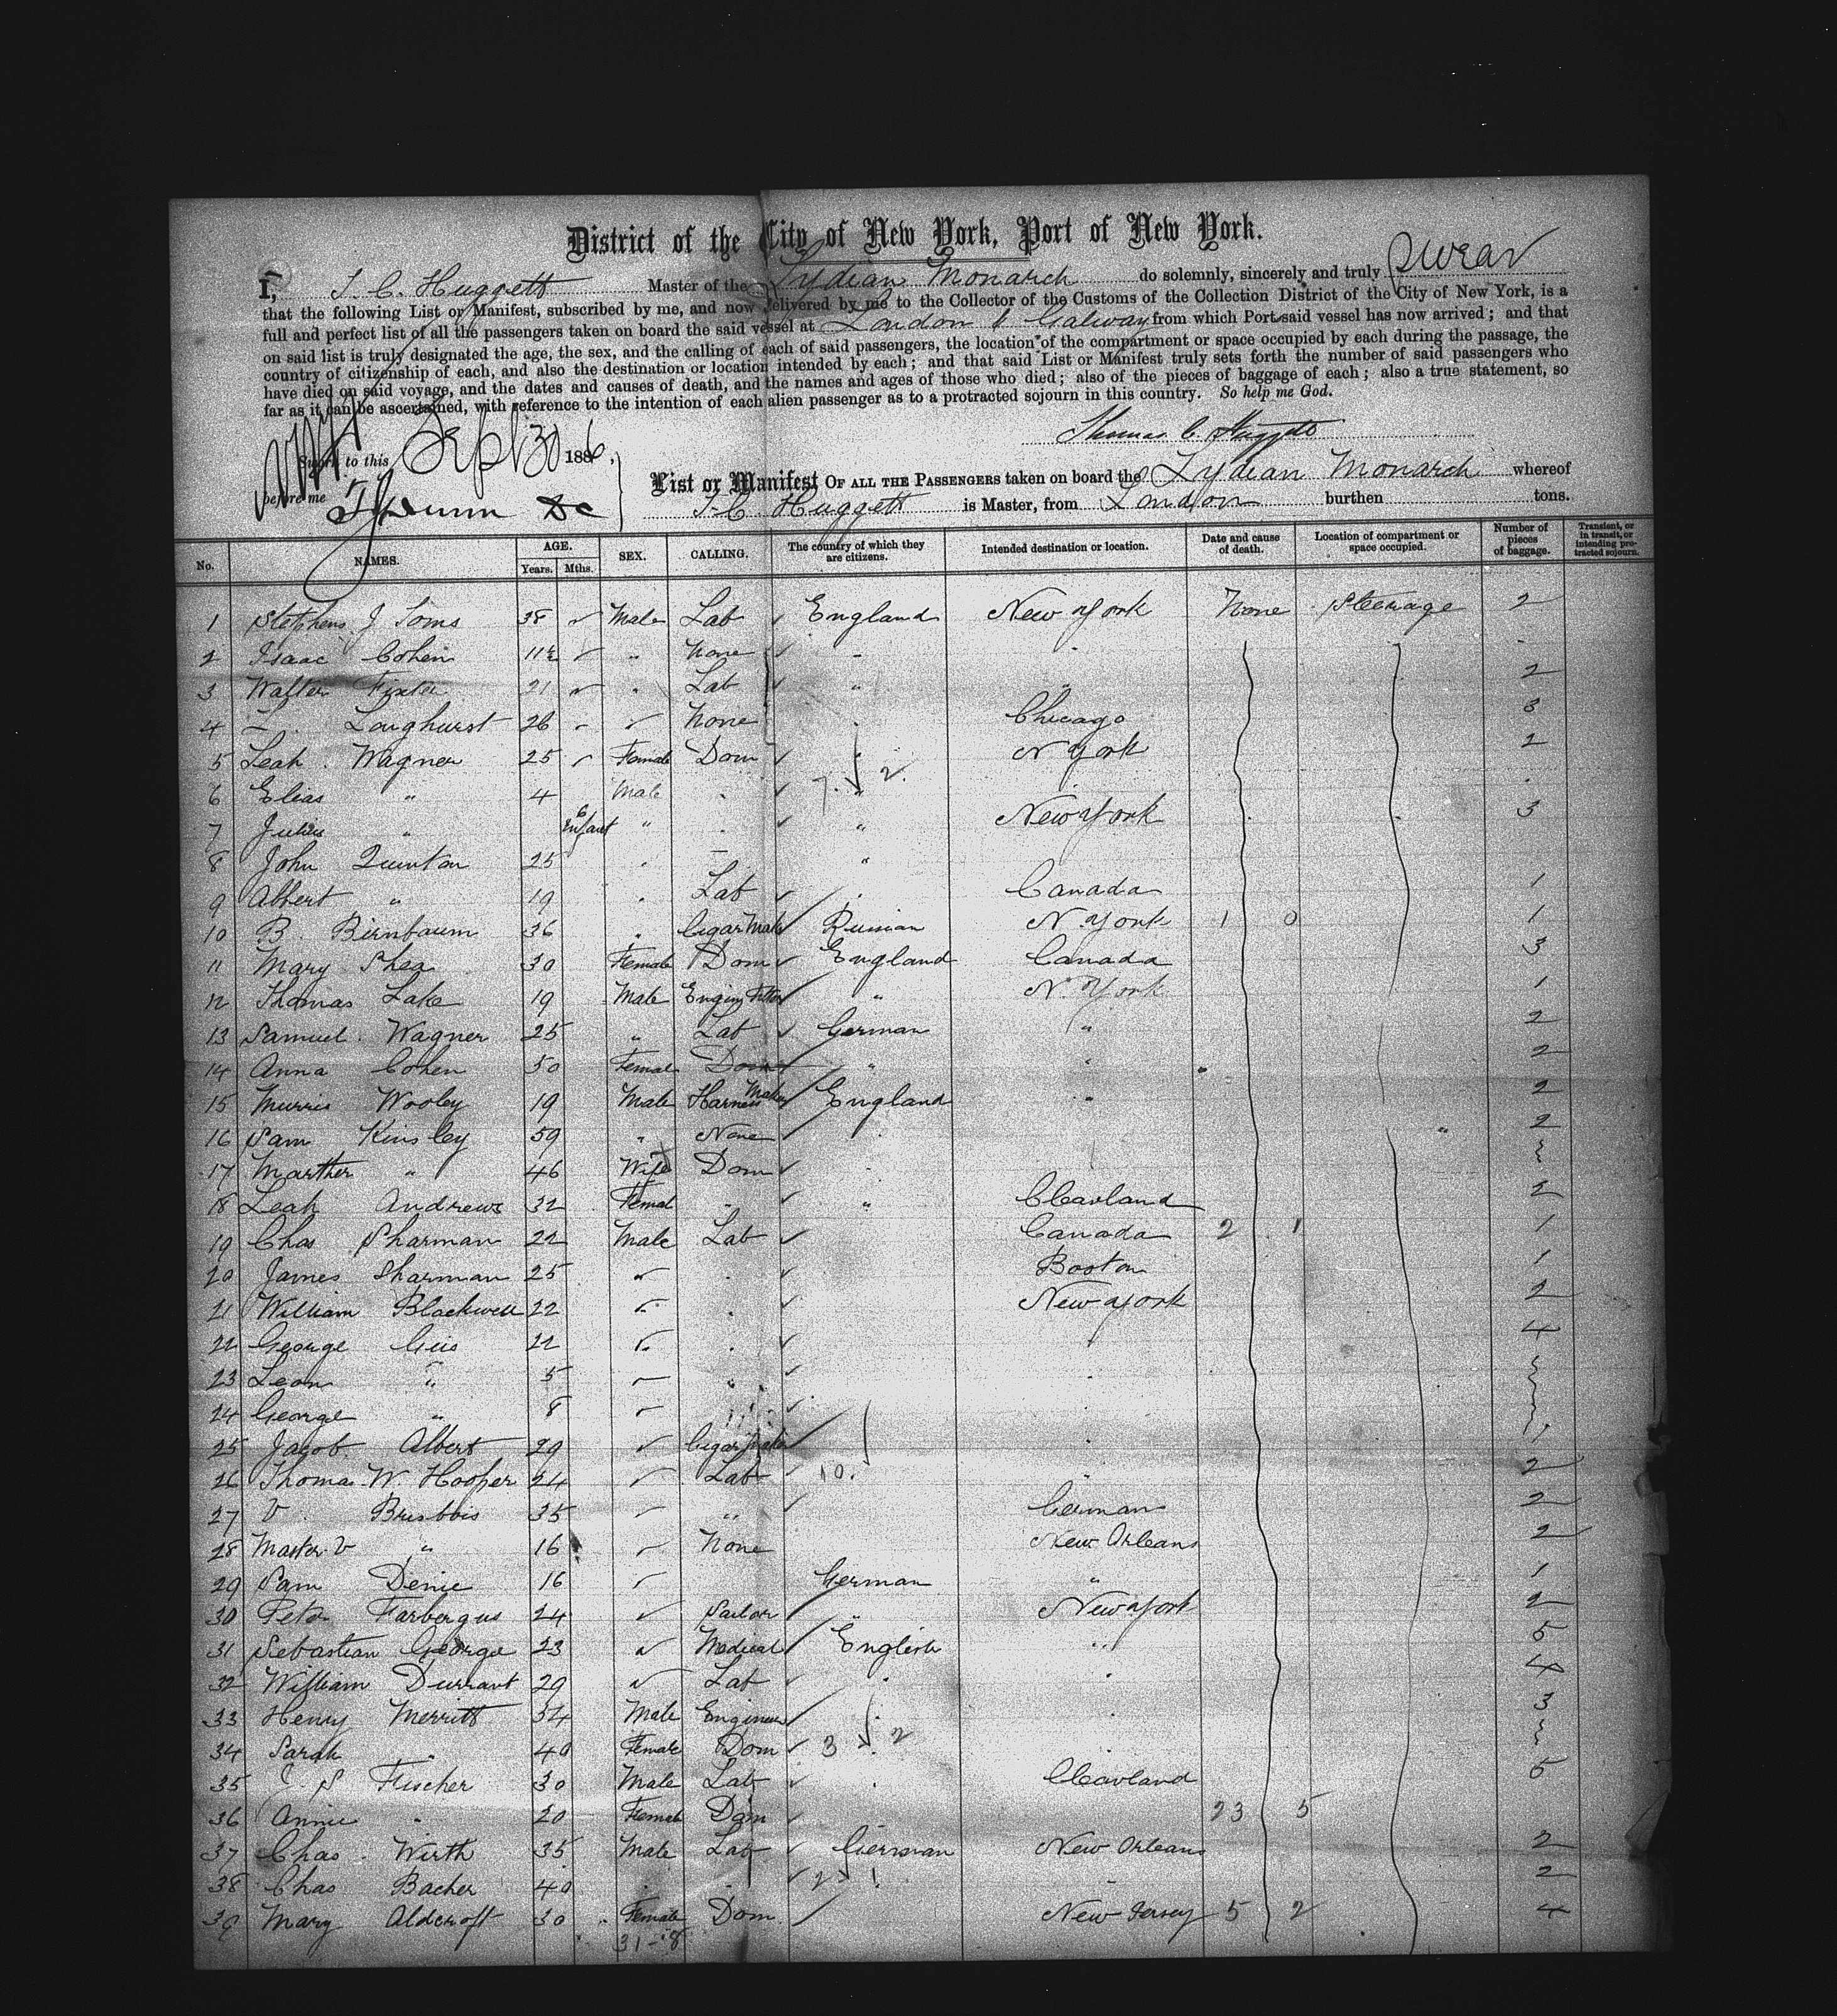 District of the City of New York, Port of New York.
I, T. C. Huggett Master of the Lydian Monarch do solemnly, sincerely and truly swear
that the following List or Manifest, subscribed by me, and now delivered by me to the Collector of the Customs of the Collection District of the City of New York, is a
full and perfect list of all the passengers taken on board the said vessel at London & Galway from which Port said vessel has now arrived; and that
on said list is truly designated the age, the sex, and the calling of each of said passengers, the location of the compartment or space occupied by each during the passage, the
country of citizenship of each, and also the destination or location intended by each; and that said List or Manifest truly sets forth the number of said passengers who
have died on said voyage, and the dates and causes of death, and the names and ages of those who died; also of the pieces of baggage of each; also a true statement, so
far as it can be ascertained, with reference to the intention of each alien passenger as to a protracted sojourn in this country. So help me God.
Thomas C. Huggett
Sworn to this Sept 30 1886,
before me
List or Manifest OF ALL THE PASSENGERS taken on board the Lydian Monarch whereof
T C Huggett is Master, from London burthen tons.
No. NAMES. AGE. Years. Mths. SEX. CALLING. The country of which they are citizens. Intended destination or location. Date and cause of death. Location of compartment or space occupied. Number of pieces of baggage. Transient, or in transit, or intending protracted sojourn.
1 Stephens J Soms 38 Male Lab England New York None Steerage 2
2 Isaac Cohen 11 " None "
3 Walter 21 " Lab " " 2
4 Longhurst 26 None Chicago 3
5 Leah Wagner 25 Female Dom " N York 2
6 Elias " 4 Male " 7 2
7 Julius " 6 Enfant " " New York 3
8 John Quinton 25 " "
9 Albert " 19 " Lab Canada 1
10 B. Birnbaum 36 " Cigar Maker Russian N. York 1 0 1
11 Mary Shea 30 Female Dom England Canada 3
12 Thomas Lake 19 Male Engin Fitter " N. York 1
13 Samuel Wagner 25 " Lab German " 2
14 Anna Cohen 50 Female Dom " " 2
15 Murris Wooley 19 Male Harness Maker England " 2
16 Sam Kinsley 59 " None " 2
17 Marther " 46 Wife Dom
18 Leah Andrews 32 Femal " " Cleavland 2
19 Chas Sharman 22 Male Lab Canada 2 1 1
20 James Sharman 25 Boston 1
21 William Blackwell 22 New York 2
22 George Geis 22 4
23 Leon " 5 "
24 George " 8
25 Jacob Albert 29 Cigar Maker 1
26 Thomas W Hooper 24 Lab 10. " 2
27 V. 35 " German 2
28 Master V " 16 None New Orleans 2
29 Sam Denie 16 German " 1
30 Peter Farbergus 24 Sailor " New York 2
31 Sebastian George 23 Medical English " 5
32 William Durrant 29 Lab " 4
33 Henry Merritt 34 Male Engineer 3
34 Sarah " 40 Female Dom 3 2
35 S Fischer 30 Male Lab Cleavland 5
36 Annie " 20 Female Dom 23 5
37 Chas. Wirth 35 Male Lab German New Orleans 2
38 Chas Bacher 40 " " 2 1 " 2
39 Mary Aldcroft 30 Female Dom New Jersey 5 2 4
31-8